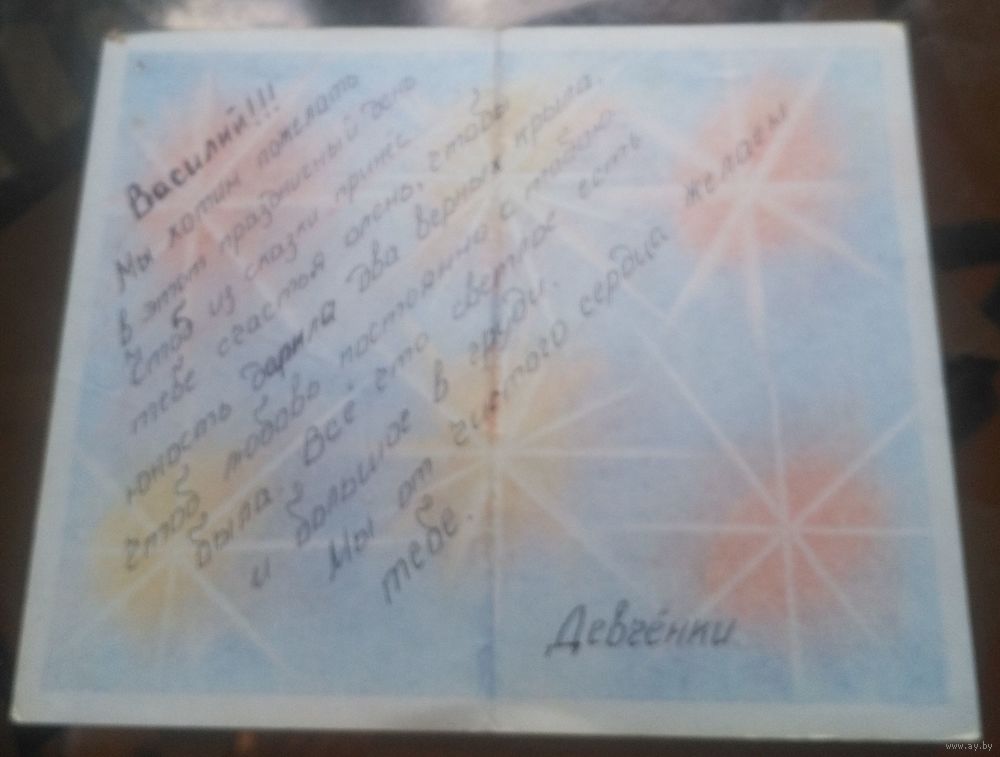 Василий!!!
Мы хотим пожелать
в этот праздничный день
Чтоб из сказки принёс
тебе счастья олень, чтобы
юность дарила два верных крыла,
чтоб любовь постоянно с тобою
была. Всё что светлое есть
и большое в груди.
Мы от чистого сердца желаем
тебе.
Девчёнки
www.ay.by